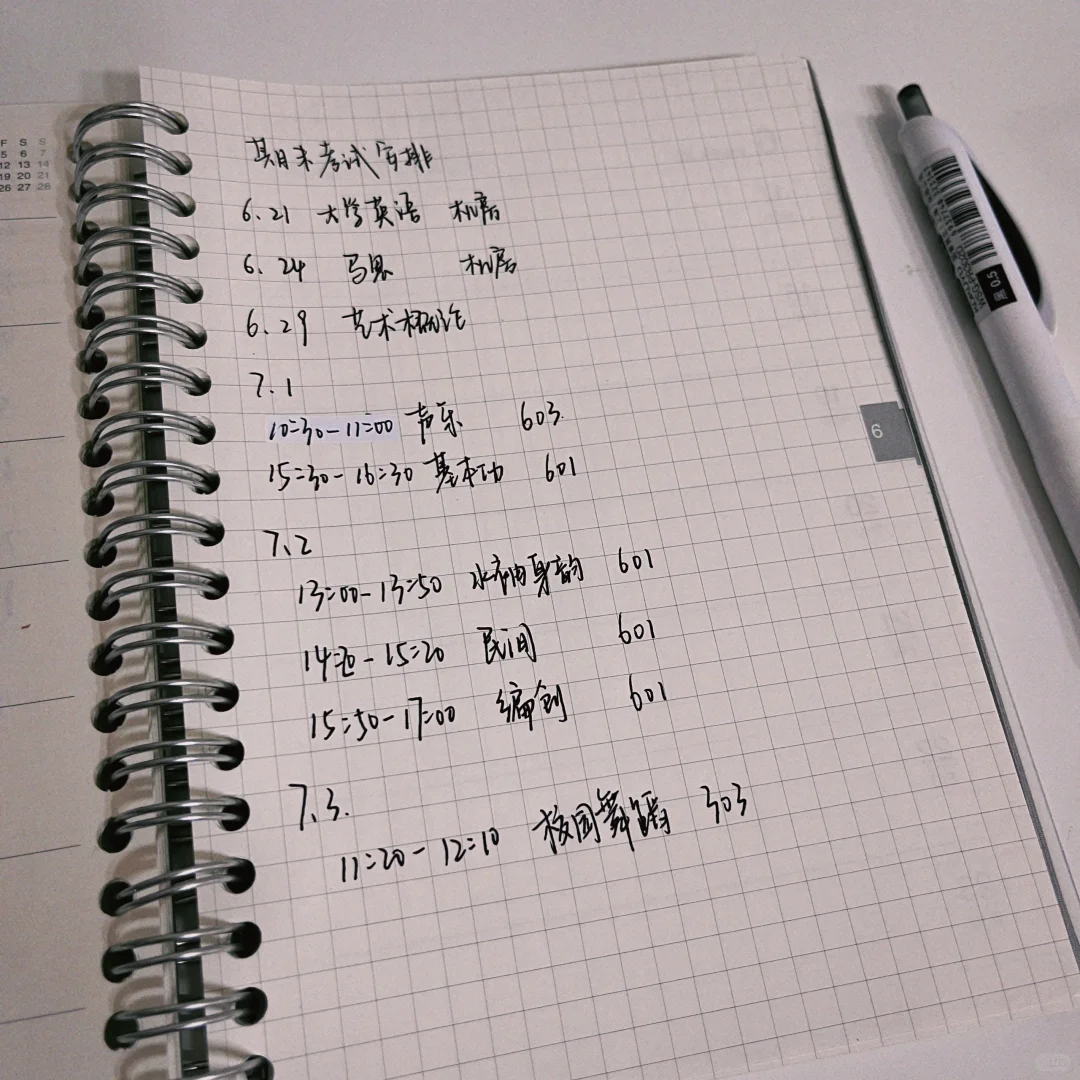 期末考试安排
6.21 大学英语 机房
6.24 马思 机房
6.29 艺术概论
7.1
10:30-11:00 声乐 603
15:30-16:30 基本功 601
7.2
13:00-13:50 水袖身韵 601
14:20-15:20 民间 601
15:50-17:00 编创 601
7.3.
11:20-12:10 校园舞蹈 303
6
黑 0.5
F S S
5 6 7
12 13 14
19 20 21
26 27 28